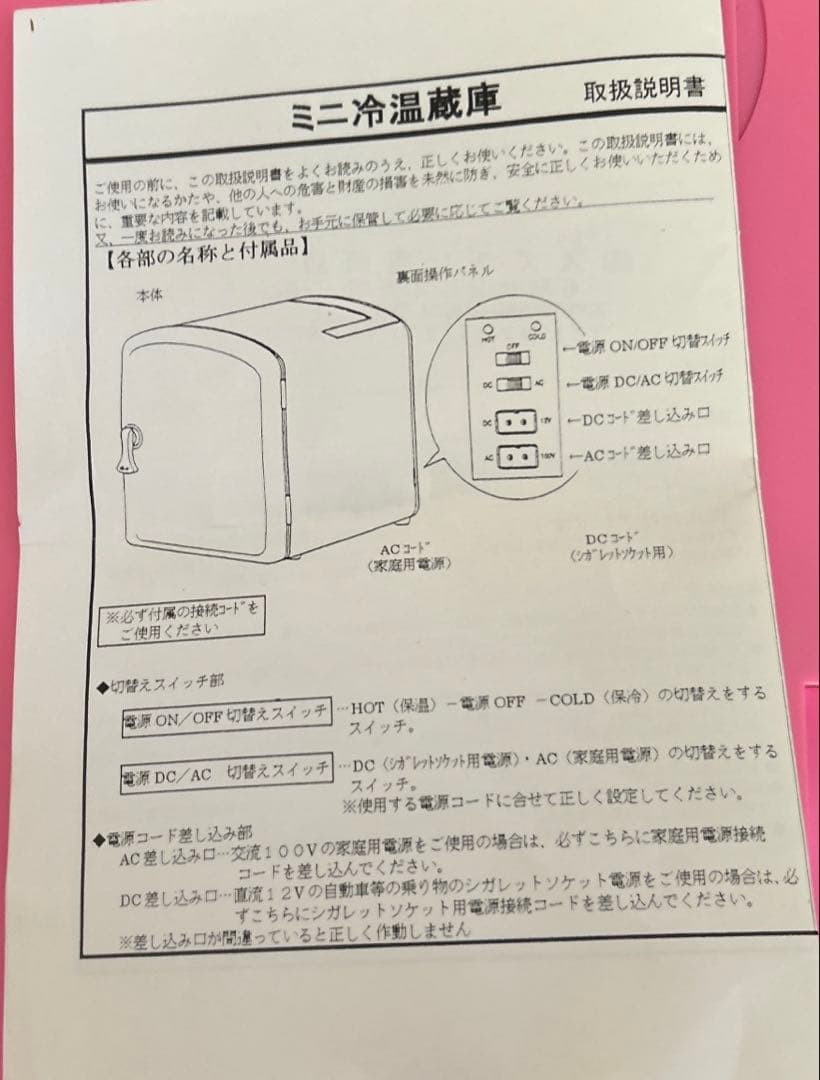 ミニ冷温蔵庫 取扱説明書
ご使用の前に、この取扱説明書をよくお読みのうえ、正しくお使いください。この取扱説明書には、
お使いになるかたや、他の人への危害と財産の損害を未然に防ぎ、安全に正しくお使いいただくため
に、重要な内容を記載しています。
又、一度お読みになった後でも、お手元に保管して必要に応じてご覧ください。
【各部の名称と付属品】
本体
裏面操作パネル
HOT COLD
OFF
←電源 ON/OFF 切替スイッチ
DC AC
←電源 DC/AC 切替スイッチ
DC 12V
←DCコード差し込み口
AC 100V
←ACコード差し込み口
ACコード
(家庭用電源)
DCコード
(シガレットソケット用)
※必ず付属の接続コードを
ご使用ください
◆切替えスイッチ部
電源 ON/OFF 切替えスイッチ …HOT(保温)-電源 OFF -COLD(保冷)の切替えをする
スイッチ。
電源 DC/AC 切替えスイッチ …DC(シガレットソケット用電源)・AC(家庭用電源)の切替えをする
スイッチ。
※使用する電源コードに合せて正しく設定してください。
◆電源コード差し込み部
AC差し込み口…交流100Vの家庭用電源をご使用の場合は、必ずこちらに家庭用電源接続
コードを差し込んでください。
DC差し込み口…直流12Vの自動車等の乗り物のシガレットソケット電源をご使用の場合は、必
ずこちらにシガレットソケット用電源接続コードを差し込んでください。
※差し込み口が間違っていると正しく作動しません